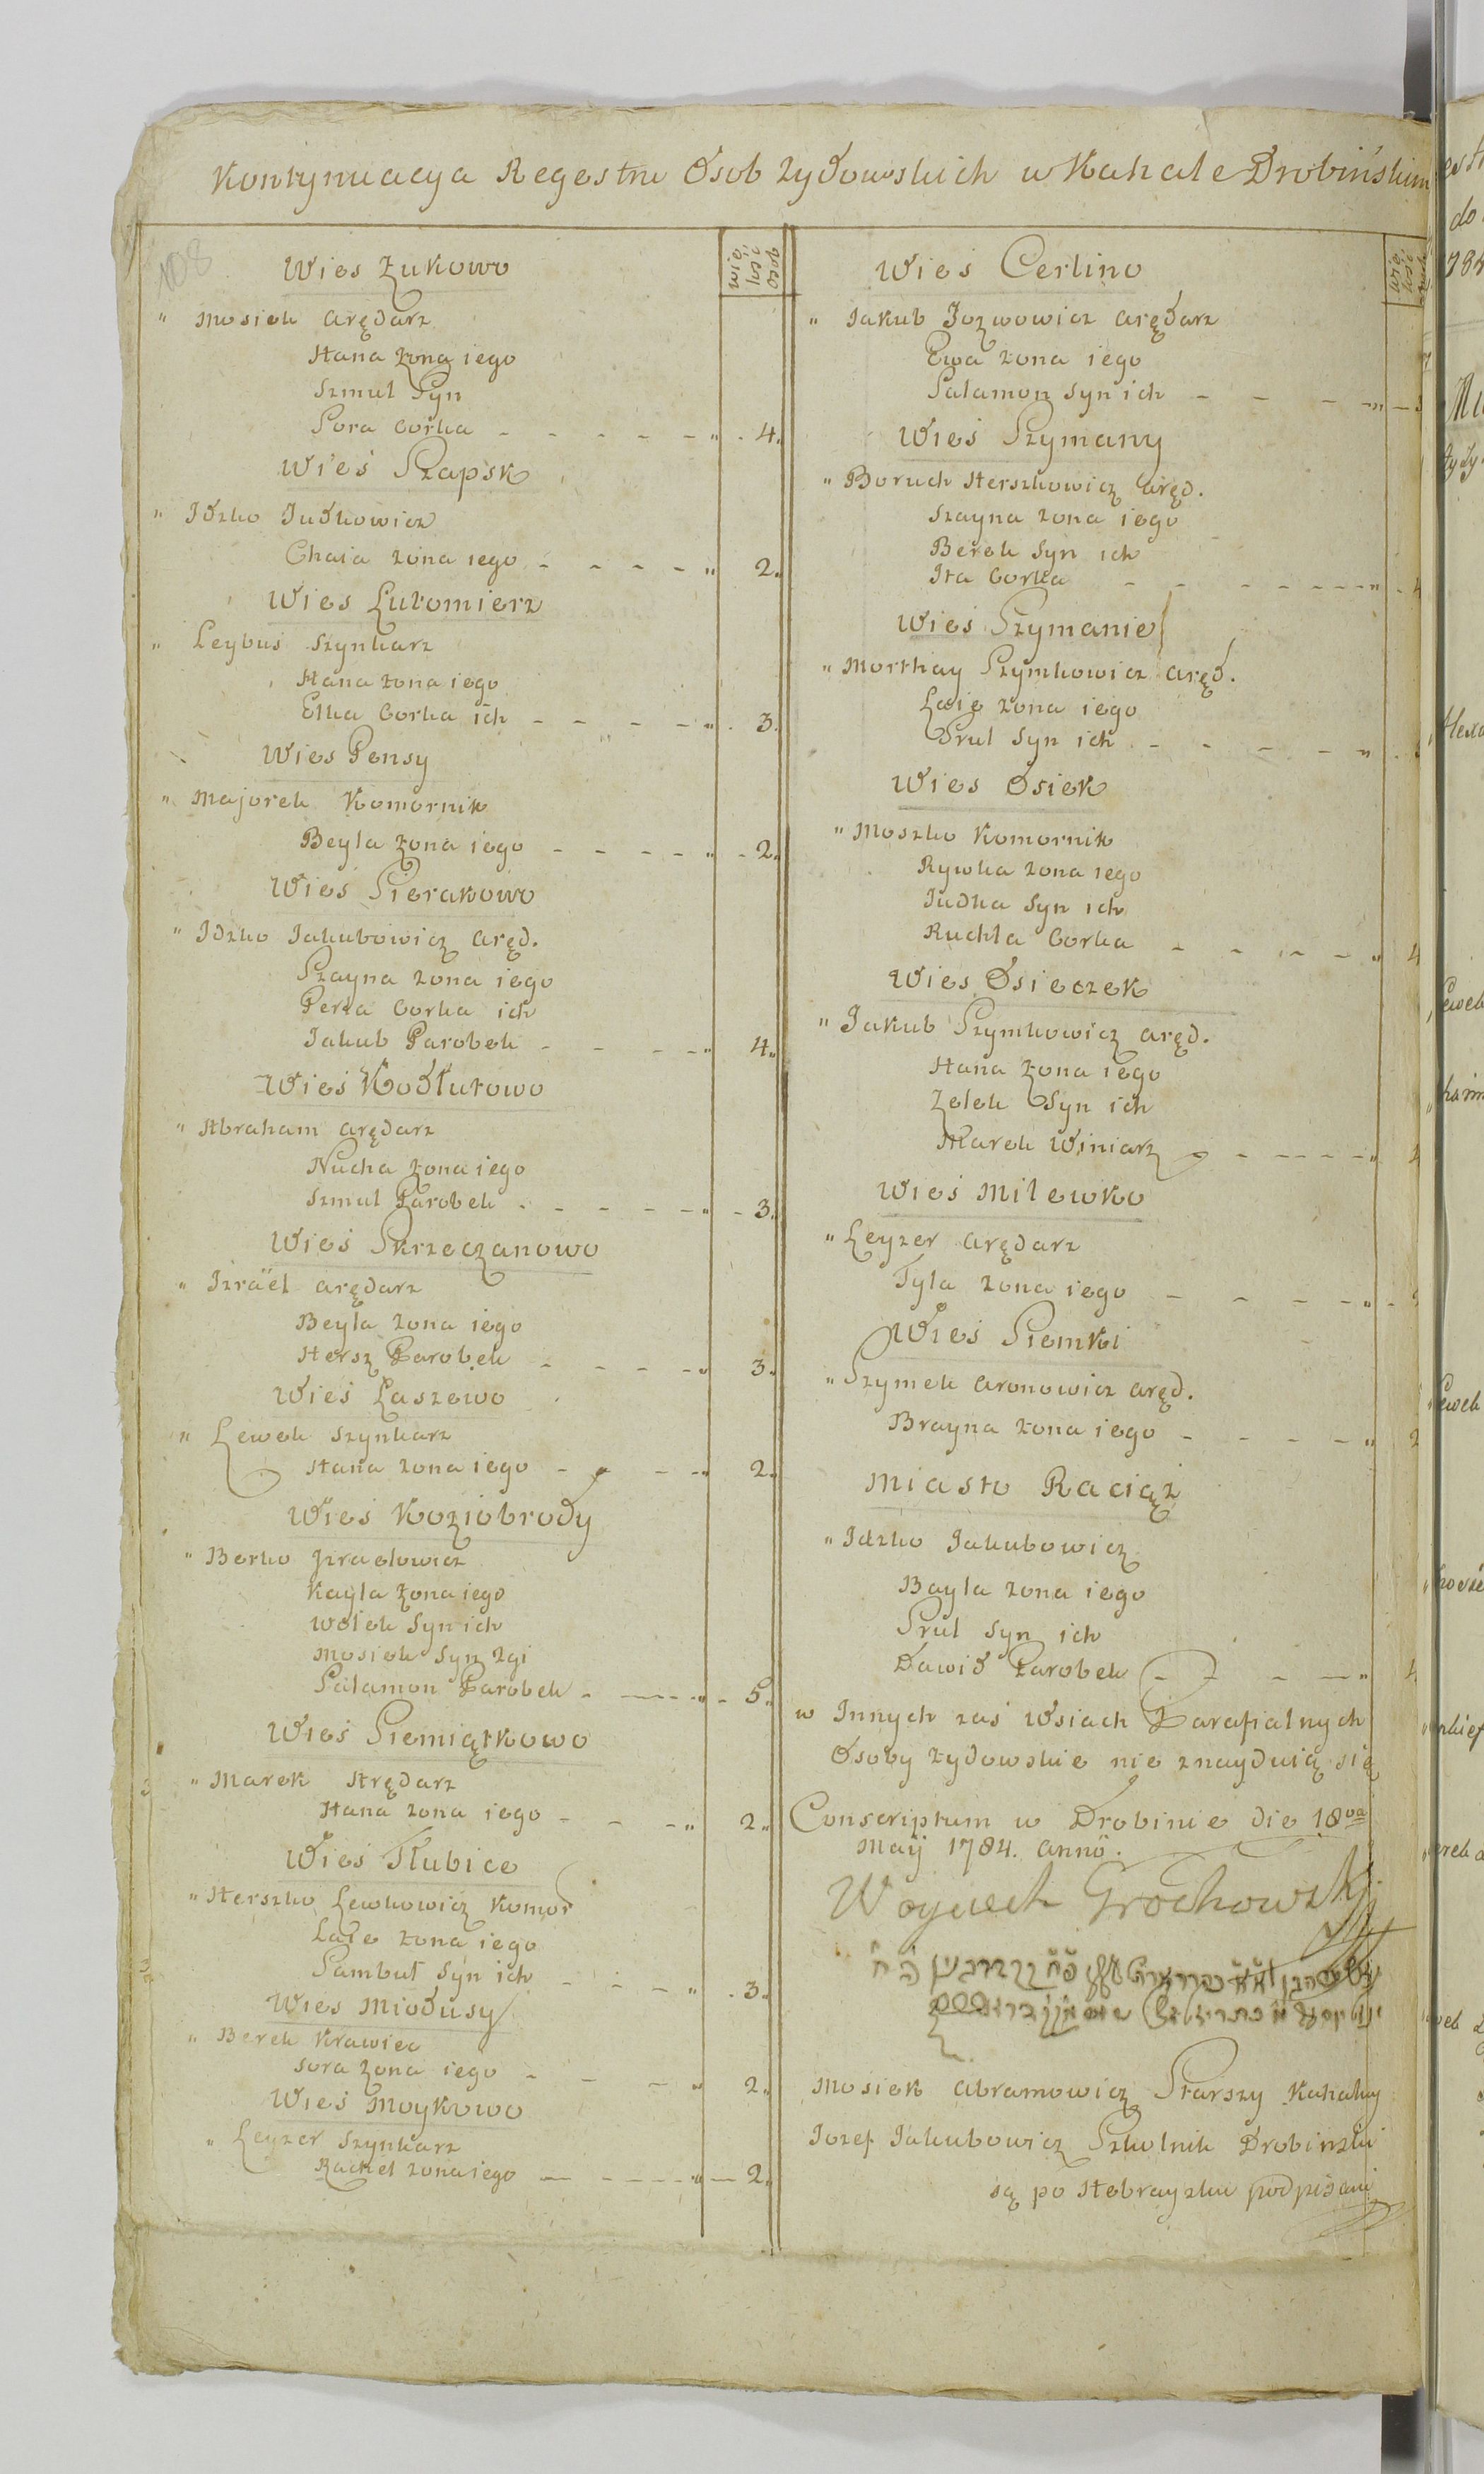 Kontynuacya Regestru Osob Zydowskich w Kahale Drobińskim
108
Wies Zukowo
wie
lość
osob
" Mosiek Arędarz
Hana zona iego
Szmul Syn
Sora Corka - - - - - " . 4.
Wieś Szapsk
" Idzko Judkowicz
Chaia zona iego - - - - " 2.
Wies Lutomierz
" Leybus Szynkarz
Hana zona iego
Elka Corka ich - - - - " . 3.
Wies Pensy
" Majorek Komornik
Beyla zona iego - - - - " - 2.
Wies Sierakowo
" Idzko Jakubowicz Aręd.
Szayna zona iego
Perla Corka ich
Jakub Parobek - - - - " 4.
Wies Kodłutowo
" Abraham Arędarz
Nucha zona iego
Szmul Parobek - - - - - " - 3.
Wies Skrzeczanowo
" Izraël Arędarz
Beyla zona iego
Hersz Parobek - - - - " 3.
Wies Laszewo
" Lewek Szynkarz
Hana zona iego - - - - " 2.
Wies Koziobrody
" Berko Jzraelowicz
Kayla zona iego
Wolek Syn ich
Mosiek Syn 2gi
Salamon Parobek - - - - - " - 5.
Wies Siemiątkowo
" Marek Arędarz
Hana zona iego - - - " 2.
Wies Słubice
" Herszko Lewkowicz Komor
Laie zona iego
Sambul Syn ich - - - - " . 3.
Wies Miodusy
" Berek Krawiec
Sora zona iego - - - " 2.
Wies Moykowo
" Leyzer Szynkarz
Rachel zona iego - - - - - " - 2.
Wies Cerlino
" Jakub Jozwowicz Arędarz
Ewa zona iego
Salamon Syn ich - - - - "
Wieś Szymany
" Boruch Herszkowicz Aręd.
Szayna zona iego
Berek Syn ich
Ita Corka - - - - - - - " . 4
Wieś Szymanie
" Morthay Szymkowicz Aręd.
Laie zona iego
Srul Syn ich - - - - - "
Wies Osiek
" Moszko Komornik
Rywka zona iego
Judka Syn ich
Ruchla Corka - - - - " 4
Wies Osieczek
" Jakub Szymkowicz Aręd.
Hana zona iego
Zelek Syn ich
Marek Winiarz - - - - - " 4
Wies Milewko
" Leyzer Arędarz
Tyla zona iego - - - - " -
Wies Siemki
" Szymek Aronowicz Aręd.
Brayna zona iego - - - - " 2
Miasto Raciąż
" Idzko Jakubowicz
Bayla zona iego
Srul Syn ich
Dawid Parobek - - - - " 4
w Innych zaś Wsiach Parafialnych
Osoby zydowskie nie znayduią się
Conscriptum w Drobinie die 18va
Maÿ 1784. Anno.
Woyciech Grochowski
Mosiek Abramowicz Starszy Kahalny
Jozef Jakubowicz Szkolnik Drobinski
są po Hebraysku podpisani